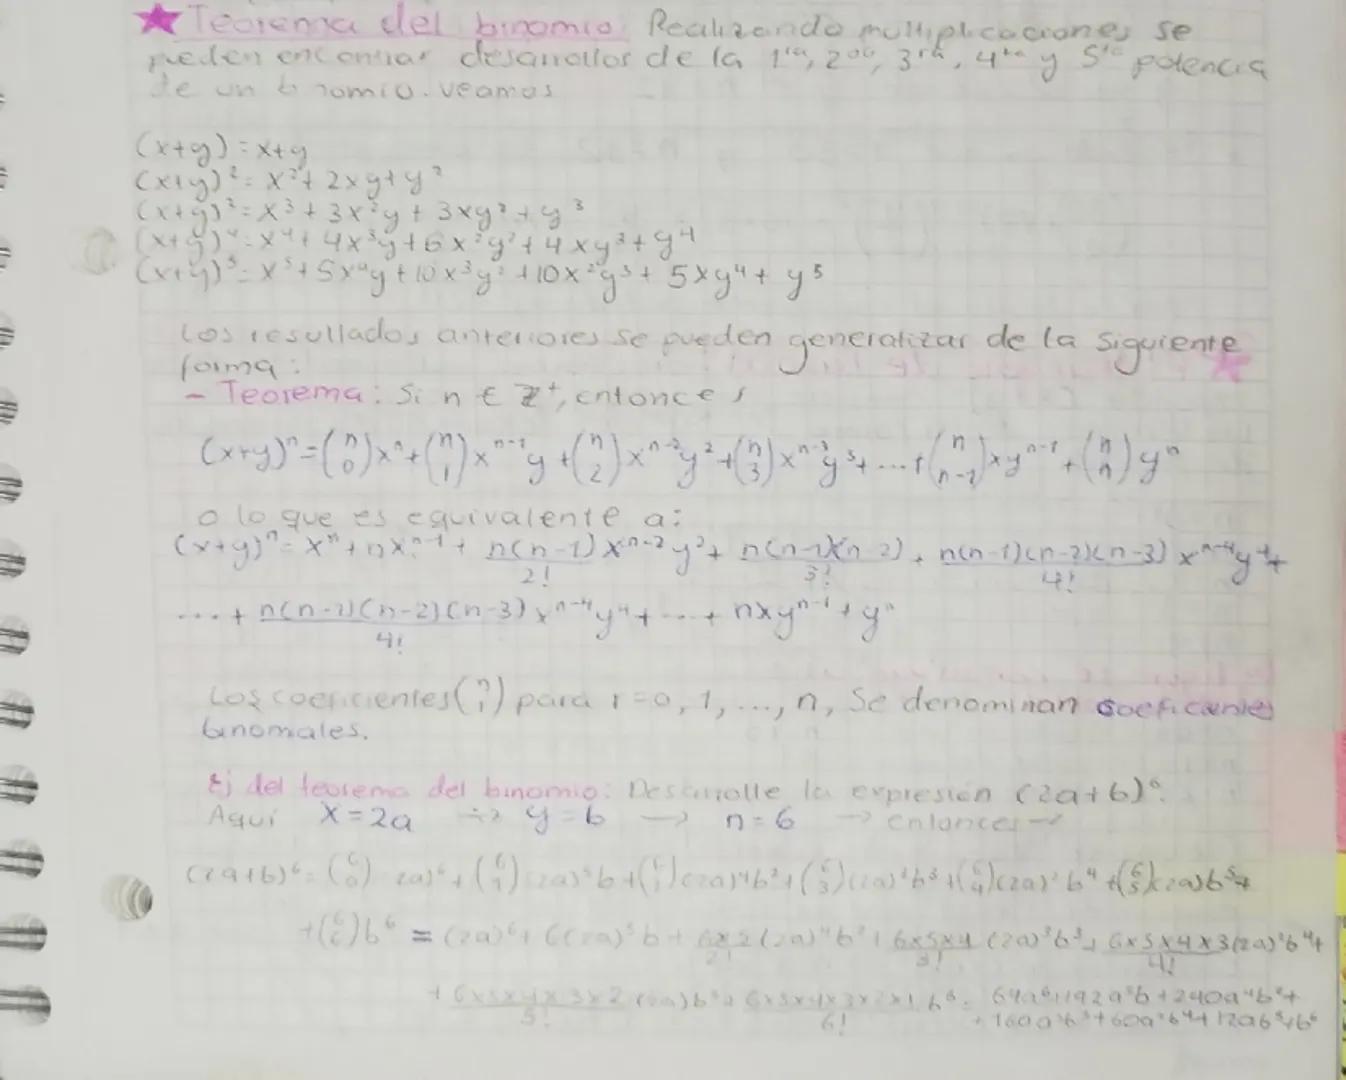 ★ Teorema del binomio: Realizando multiplicaciones se
pueden encontrar desarrollos de la 1ra, 2da, 3ra, 4ta y 5ta potencia
de un binomio. veamos
(x+y) = x+y
(x+y)² = x² + 2xy + y²
(x+y)³ = x³ + 3x²y + 3xy² + y³
(x+y)⁴ = x⁴ + 4x³y + 6x²y² + 4xy³ + y⁴
(x+y)⁵ = x⁵ + 5x⁴y + 10x³y² + 10x²y³ + 5xy⁴ + y⁵
Los resultados anteriores se pueden generalizar de la siguiente
forma:
- Teorema: Si n ∈ Z⁺, entonces
(x+y)ⁿ = (n 0)xⁿ + (n 1)xⁿ⁻¹y + (n 2)xⁿ⁻²y² + (n 3)xⁿ⁻³y³ + ... + (n n-1)xyⁿ⁻¹ + (n n)yⁿ
o lo que es equivalente a:
(x+y)ⁿ = xⁿ + nxⁿ⁻¹ + n(n-1)/2! xⁿ⁻²y² + n(n-1)(n-2)/3! + n(n-1)(n-2)(n-3)/4! xⁿ⁻⁴y⁴ +
... + n(n-1)(n-2)(n-3)/4! xⁿ⁻⁴y⁴ + ... + nxyⁿ⁻¹ + yⁿ
Los coeficientes (n r) para r=0, 1, ..., n, Se denominan coeficientes
binomales.
Ej del teorema del binomio: Desarrolle la expresión (2a+b)⁶.
Aquí x=2a → y=b → n=6 → entonces →
(2a+b)⁶ = (6 0)(2a)⁶ + (6 1)(2a)⁵b + (2a)⁴b² + (6 3)(2a)³b³ + (6 4)(2a)²b⁴ + (6 5)(2a)b⁵ +
+ (6 6)b⁶ = (2a)⁶ + 6(2a)⁵b + (2a)⁴b² + 6x5x4/3! (2a)³b³ + 6x5x4x3/4! (2a)²b⁴ +
+ 6x5x4x3x2/5! (2a)b⁵ + 6x5x4x3x2x1/6! b⁶ = 64a⁶+192a⁵b+240a⁴b²+
+160a³b³+60a²b⁴+12ab⁵+b⁶